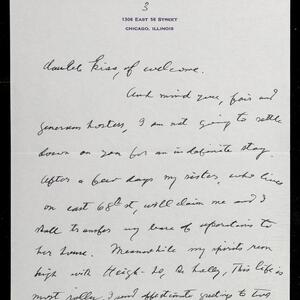 3
1306 EAST 58 STREET
CHICAGO, ILLINOIS
double kiss, of welcome.
And mind you, fair and
generous hostess, I am not going to settle
down on you for an indefinite stay.
After a few days my sister, who lives
on east 68th st, will claim me and I
shall transfer my base of operations to
her house. Meanwhile my spirits run
high with Heigh-ho, the holly, This life is
most jolly. I send affectionate greeting to two